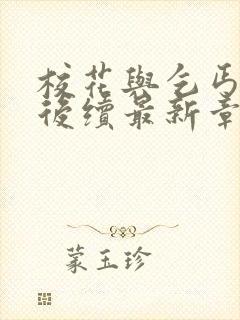 校花與乞丐
後續最新章
蒙玉珍